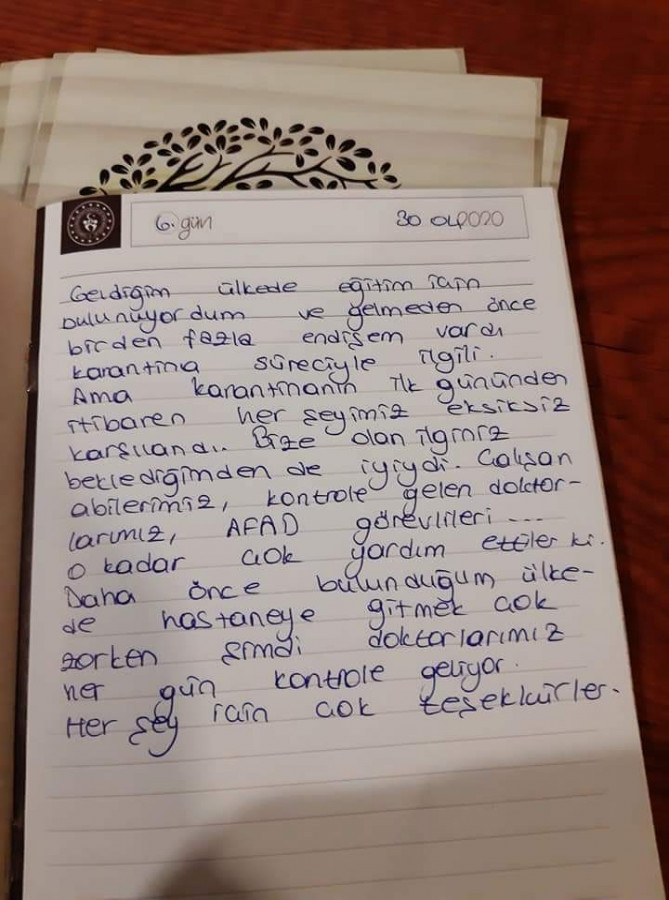 6. gün 30 04 2020
Geldiğim ülkede eğitim için
bulunuyordum ve gelmeden önce
birden fazla endişem vardı
karantina süreciyle ilgili.
Ama karantinanın ilk gününden
itibaren her şeyimiz eksiksiz
karşılandı. Bize olan ilginiz
beklediğimden de iyiydi. Çalışan
abilerimiz, kontrole gelen doktor-
larımız, AFAD görevlileri ...
O kadar çok yardım ettiler ki.
Daha önce bulunduğum ülke-
de hastaneye gitmek çok
zorken şimdi doktorlarımız
her gün kontrole geliyor.
Her şey için çok teşekkürler.